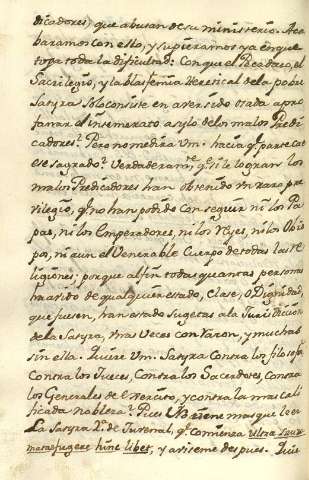 dicadores) que abusan de su ministerio. Aca
baramos con ello, y supieramos ya en que
topa toda la dificultad: Con que el Pecadazo, el
Sacrilegio, y la blasfemia heretical de la pobre
Satyra solo consiste en aver sido osada a pro
fanar el inmemerato asylo de los malos Predi
cadores? Pero no me dira Vm. hacia q.e parte cae
ese sagrado? Verdaderam.te q.e si le logran los
malos Predicadores han obtenido un raro pre
vilegio, q.e no han podido conseguir ni los Pa
pas, ni los Emperadores, ni los Reyes, ni los Obis
pos, ni aun el Venerable Cuerpo de todas las re
ligiones: porque al fin todas quantas personas
ha avido de qualquier estado, Clase, o Dignidad,
que fuesen, han estado sugetas a la Jurisdiccion
de la Satyra, unas veces con razon, y muchas
sin ella. Quiere Vm. Satyra contra los filosofos
contra los Jueces, Contra los Sacerdotes, contra
los Generales de Exercito, y contra la mas cali
ficada nobleza? Pues no tiene mas que leer
La Satyra 2.a de Juvenal, q.e comienza Ultra Sauro
matas fugere hinc libet, y aviseme despues. Quie